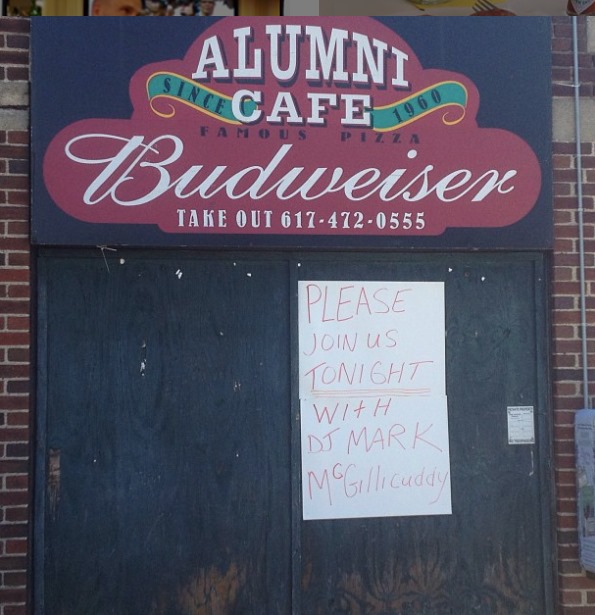 ALUMNI
SINCE CAFE 1960
FAMOUS PIZZA
Budweiser
TAKE OUT 617-472-0555
PLEASE
JOIN US
TONIGHT
WItH
DJ MARK
McGillicuddy